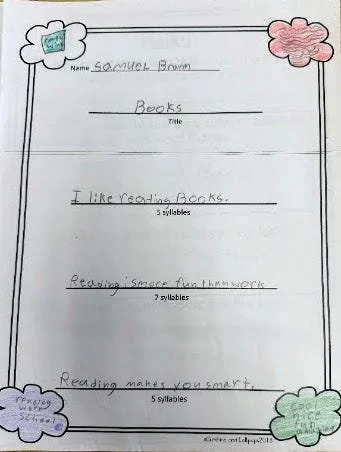 Name Samuel Brown
Books
Title
I like reading Books.
5 syllables
Reading is more fun than work
7 syllables
Reading makes you smart.
5 syllables
reading
work
school
nice
fun